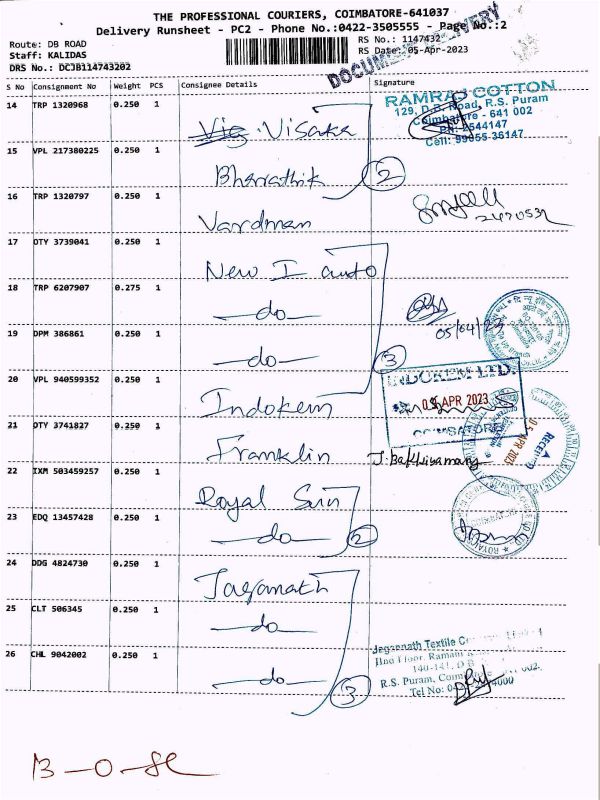 THE PROFESSIONAL COURIERS, COIMBATORE-641037
Delivery Runsheet - PC2 - Phone No.:0422-3505555 - Page No.:2
DOCUMENT DELIVERY
Route: DB ROAD
Staff: KALIDAS
DRS No.: DCJB114743202
RS No.: 1147432
RS Date: 05-Apr-2023
S No Consignment No Weight PCS Consignee Details Signature
14 TRP 1320968 0.250 1 Visaka
RAMRAJ COTTON
129, D.B. Road, R.S. Puram
Coimbatore - 641 002
Ph: 2544147
Cell: 99055 36147
15 VPL 217380225 0.250 1 Bharathik
2
16 TRP 1320797 0.250 1 Vardman
2470532
17 OTY 3739041 0.250 1 New I auto
18 TRP 6207907 0.275 1 -do-
05/04/23
19 DPM 386861 0.250 1 -do-
3
20 VPL 940599352 0.250 1 Indokem
INDOKEM LTD.
05 APR 2023
COIMBATORE
21 OTY 3741827 0.250 1 Franklin
22 IXM 503459257 0.250 1 Royal Sun
23 EDQ 13457428 0.250 1 -do-
2
24 DDG 4824730 0.250 1 Jaganath
25 CLT 506345 0.250 1 -do-
26 CHL 9042002 0.250 1 -do-
3
Jagannath Textile
140-141, D.B
R.S. Puram,
Tel No: